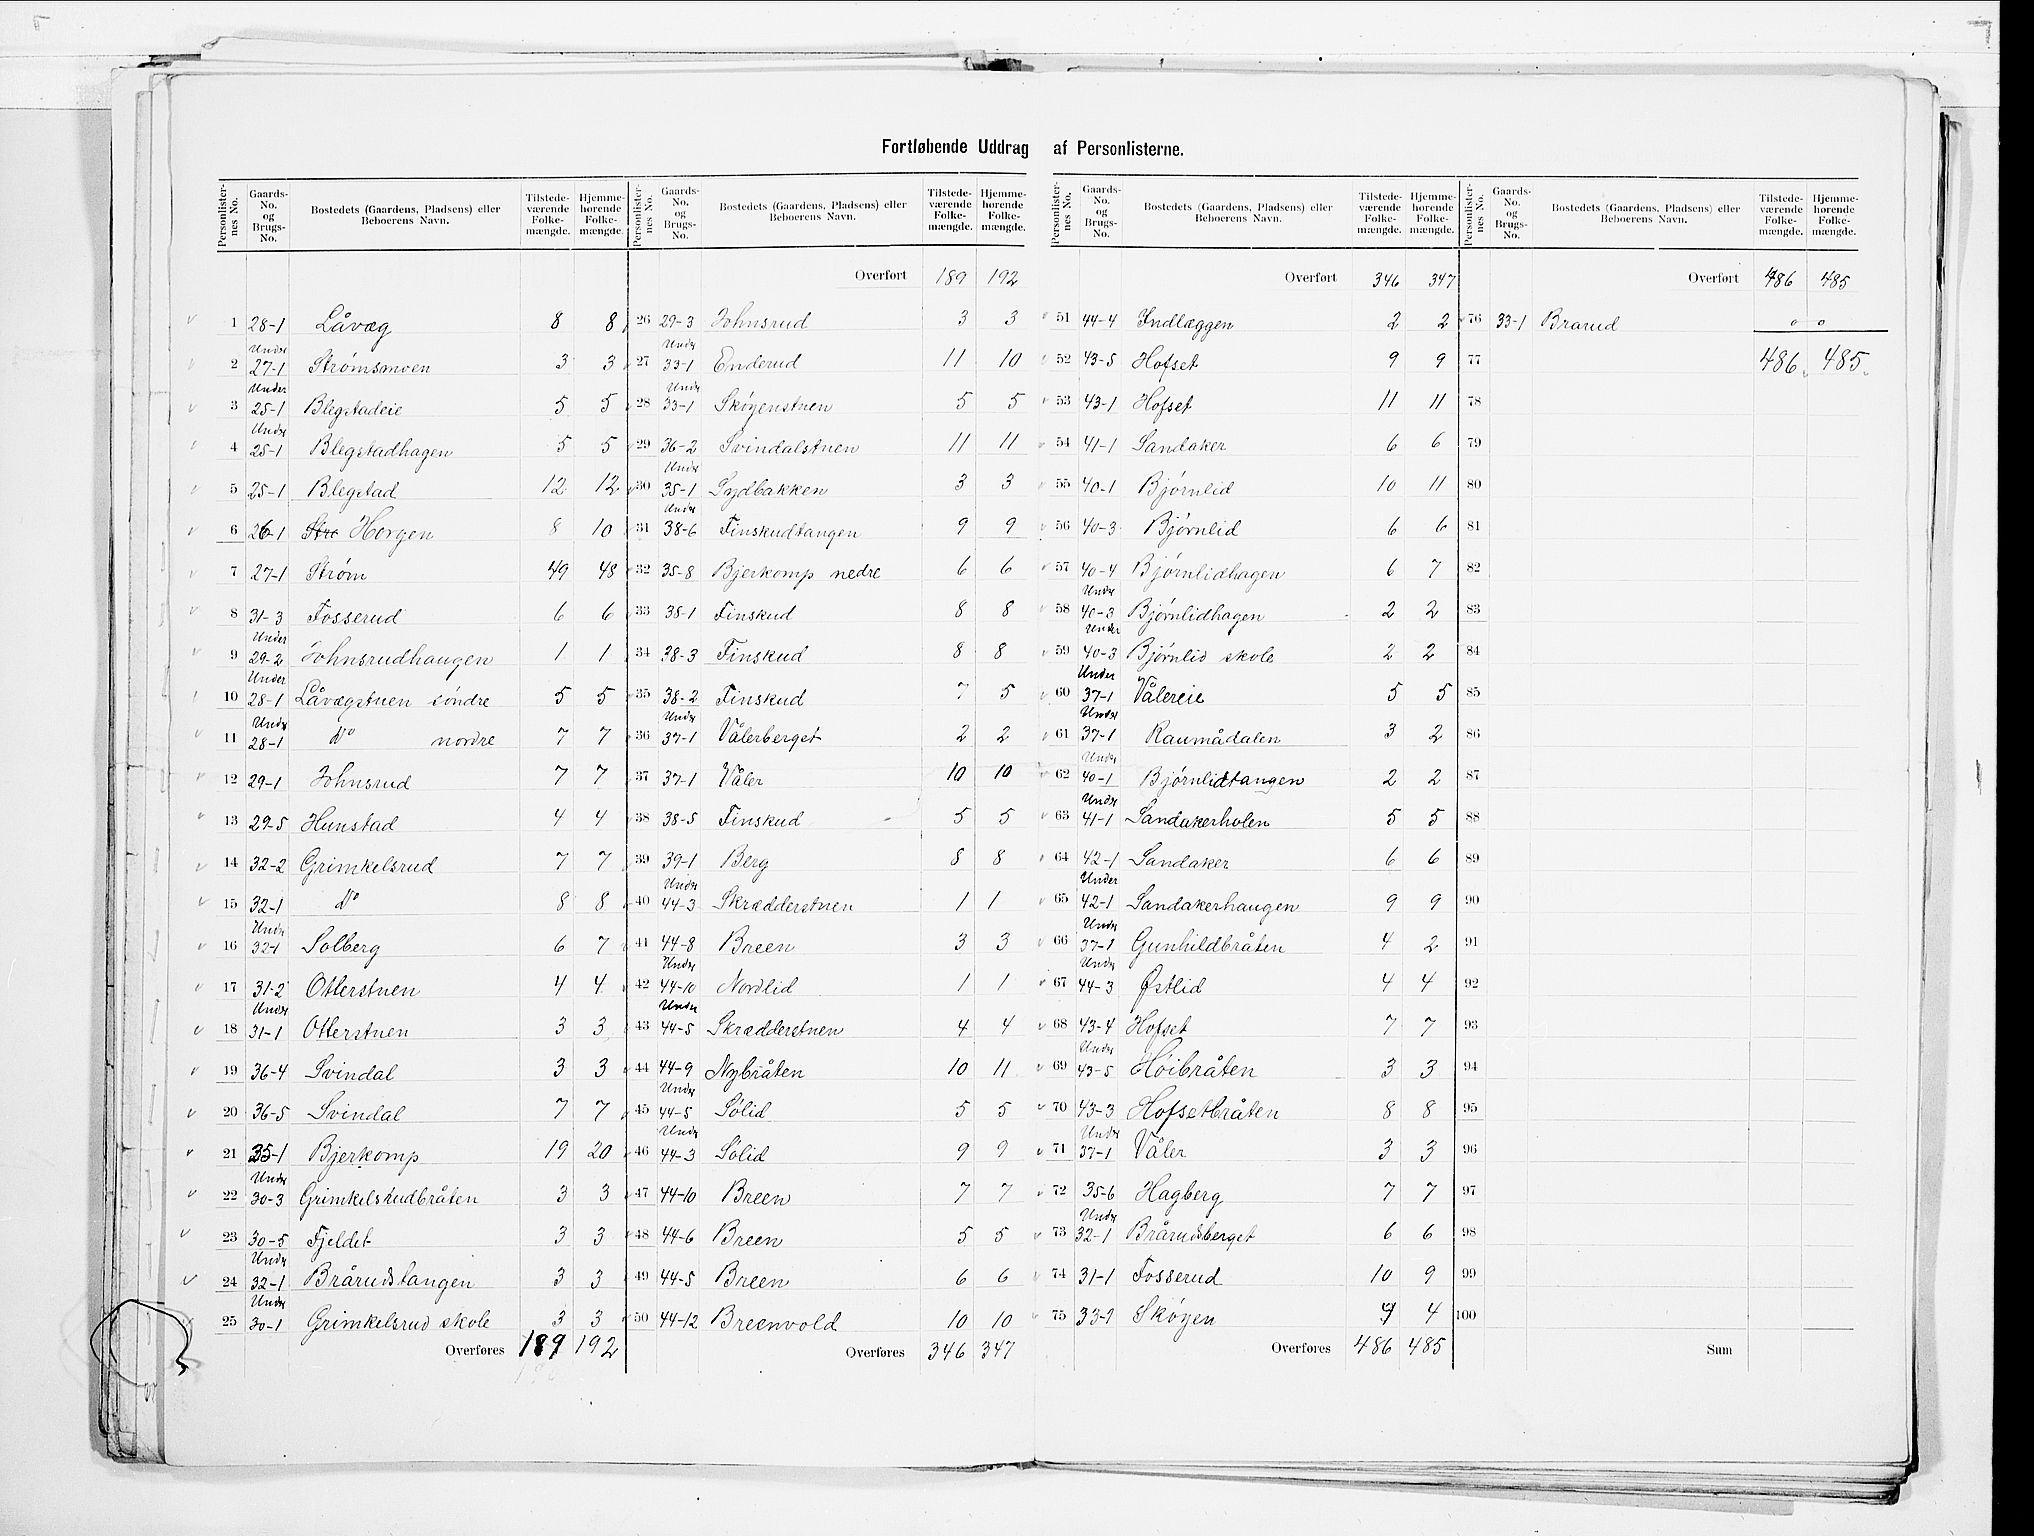 Fortløbende Uddrag af Personlisterne.
Personlisternes No. | Gaards-No. og Brugs-No. | Bostedets (Gaardens, Pladsens) eller Beboerens Navn. | Tilstedeværende Folkemængde. | Hjemmehørende Folkemængde.
1 28-1 Låvæg 8 8
2 Under 27-1 Strømsmoen 3 3
3 Under 25-1 Blegstadeie 5 5
4 Under 25-1 Blegstadhagen 5 5
5 25-1 Blegstad 12 12
6 26-1 Horgen 8 10
7 27-1 Strøm 49 48
8 31-3 Fosserud 6 6
9 Under 29-2 Johnsrudhaugen 1 1
10 Under 28-1 Låvægstuen söndre 5 5
11 Under 28-1 Do nordre 7 7
12 29-1 Johnsrud 7 7
13 29-5 Hunstad 4 4
14 32-2 Grimkelsrud 7 7
15 32-1 Do 8 8
16 Under 32-1 Solberg 6 7
17 31-2 Otterstuen 4 4
18 Under 31-1 Otterstuen 3 3
19 36-4 Svindal 3 3
20 36-5 Svindal 7 7
21 35-1 Bjerkomp 19 20
22 Under 30-3 Grimkelsrudbråten 3 3
23 30-5 Fjeldet 3 3
24 Under 32-1 Brårudstangen 3 3
25 Under 30-1 Grimkelsrud skole 3 3
Overføres 189 192
Personlisternes No. | Gaards-No. og Brugs-No. | Bostedets (Gaardens, Pladsens) eller Beboerens Navn. | Tilstedeværende Folkemængde. | Hjemmehørende Folkemængde.
Overført 189 192
26 29-3 Johnsrud 3 3
27 Under 33-1 Enderud 11 10
28 Under 33-1 Skøyenstuen 5 5
29 36-2 Svindalstuen 11 11
30 Under 35-1 Sydbakken 3 3
31 Under 38-6 Finskudtangen 9 9
32 35-8 Bjerkomp nedre 6 6
33 38-1 Finskud 8 8
34 38-3 Finskud 8 8
35 38-2 Finskud 7 5
36 Under 37-1 Vålerberget 2 2
37 37-1 Våler 10 10
38 38-5 Finskud 5 5
39 39-1 Berg 8 8
40 Under 44-3 Skrædderstuen 1 1
41 44-8 Breen 3 3
42 Under 44-10 Nordlid 1 1
43 Under 44-5 Skrædderstuen 4 4
44 44-9 Nybråten 10 11
45 Under 44-5 Sølid 5 5
46 Under 44-3 Sølid 9 9
47 44-10 Breen 7 7
48 44-6 Breen 5 5
49 44-5 Breen 6 6
50 44-12 Breenvold 10 10
Overføres 346 347
Personlisternes No. | Gaards-No. og Brugs-No. | Bostedets (Gaardens, Pladsens) eller Beboerens Navn. | Tilstedeværende Folkemængde. | Hjemmehørende Folkemængde.
Overført 346 347
51 44-4 Indlæggen 2 2
52 43-5 Hofset 9 9
53 43-1 Hofset 11 11
54 41-1 Sandaker 6 6
55 40-1 Bjørnlid 10 11
56 40-3 Bjørnlid 6 6
57 40-4 Bjørnlidhagen 6 7
58 Under 40-3 Bjørnlidhagen 2 2
59 Under 40-3 Bjørnlid skole 2 2
60 Under 37-1 Vålereie 5 5
61 Under 37-1 Raumådalen 3 2
62 Under 40-1 Bjørnlidtangen 2 2
63 Under 41-1 Sandakerholen 5 5
64 42-1 Sandaker 6 6
65 Under 42-1 Sandakerhaugen 9 9
66 Under 37-1 Gunhildbråten 4 2
67 Under 44-3 Østlid 4 4
68 43-4 Hofset 7 7
69 Under 43-5 Høibråten 3 3
70 43-3 Hofsetbråten 8 8
71 Under 37-1 Våler 3 3
72 35-6 Hagberg 7 7
73 Under 32-1 Brårudsberget 6 6
74 31-1 Fosserud 10 9
75 33-1 Skøyen 4
Overføres 486 485
Personlisternes No. | Gaards-No. og Brugs-No. | Bostedets (Gaardens, Pladsens) eller Beboerens Navn. | Tilstedeværende Folkemængde. | Hjemmehørende Folkemængde.
Overført 486 485
76 33-1 Brarud 0 0
77 486 485
78
79
80
81
82
83
84
85
86
87
88
89
90
91
92
93
94
95
96
97
98
99
100
Sum